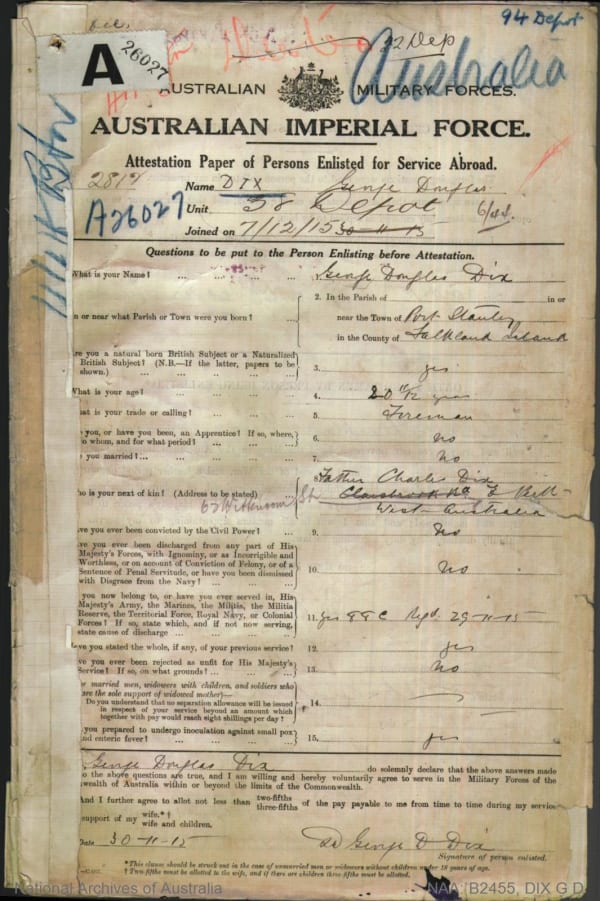 94 Depot
A 26027
32 Dep
Australia
AUSTRALIAN MILITARY FORCES.
AUSTRALIAN IMPERIAL FORCE.
Attestation Paper of Persons Enlisted for Service Abroad.
2817 Name DIX George Douglas
A26027 Unit 58 Depot
Joined on 7/12/15 30-11-15
Questions to be put to the Person Enlisting before Attestation.
What is your Name? ... ... ... ... George Douglas Dix
2. In the Parish of in or
n or near what Parish or Town were you born? ... near the Town of Port Stanley
in the County of Falkland Island
re you a natural born British Subject or a Naturalized
British Subject? (N.B.—If the latter, papers to be
shown.) ... ... ... 3. yes
What is your age? ... ... ... ... 4. 20 11/12 years
hat is your trade or calling? ... ... ... 5. Foreman
you, or have you been, an Apprentice? If so, where,
o whom, and for what period? ... ... 6. no
you married? ... ... ... ... 7. no
8. Father Charles Dix
ho is your next of kin? (Address to be stated) ... 62 Wittenoom St Claisbrook Rd E Perth
West Australia
ve you ever been convicted by the Civil Power? ... 9. No
ve you ever been discharged from any part of His
Majesty's Forces, with Ignominy, or as Incorrigible and
Worthless, or on account of Conviction of Felony, or of a
Sentence of Penal Servitude, or have you been dismissed
with Disgrace from the Navy? ... ... ... 10. No
you now belong to, or have you ever served in, His
Majesty's Army, the Marines, the Militia, the Militia
Reserve, the Territorial Force, Royal Navy, or Colonial
Forces? If so, state which, and if not now serving,
state cause of discharge ... ... ... 11. yes 88C 29-11-15
ave you stated the whole, if any, of your previous service? 12. yes
ve you ever been rejected as unfit for His Majesty's
Service? If so, on what grounds? ... ... 13. No
r married men, widowers with children, and soldiers who
are the sole support of widowed mother—
Do you understand that no separation allowance will be issued
in respect of your service beyond an amount which
together with pay would reach eight shillings per day? 14.
you prepared to undergo inoculation against small pox
and enteric fever? ... ... ... 15. yes
George Douglas Dix do solemnly declare that the above answers made
o the above questions are true, and I am willing and hereby voluntarily agree to serve in the Military Forces of the
wealth of Australia within or beyond the limits of the Commonwealth.
And I further agree to allot not less than two-fifths three-fifths of the pay payable to me from time to time during my service
support of my wife.*† wife and children.
Date 30-11-15 Sd George D Dix
Signature of person enlisted.
*This clause should be struck out in the case of unmarried men or widowers without children under 18 years of age.
† Two fifths must be allotted to the wife, and if there are children three fifths must be allotted.
National Archives of Australia NAA: B2455, DIX G D